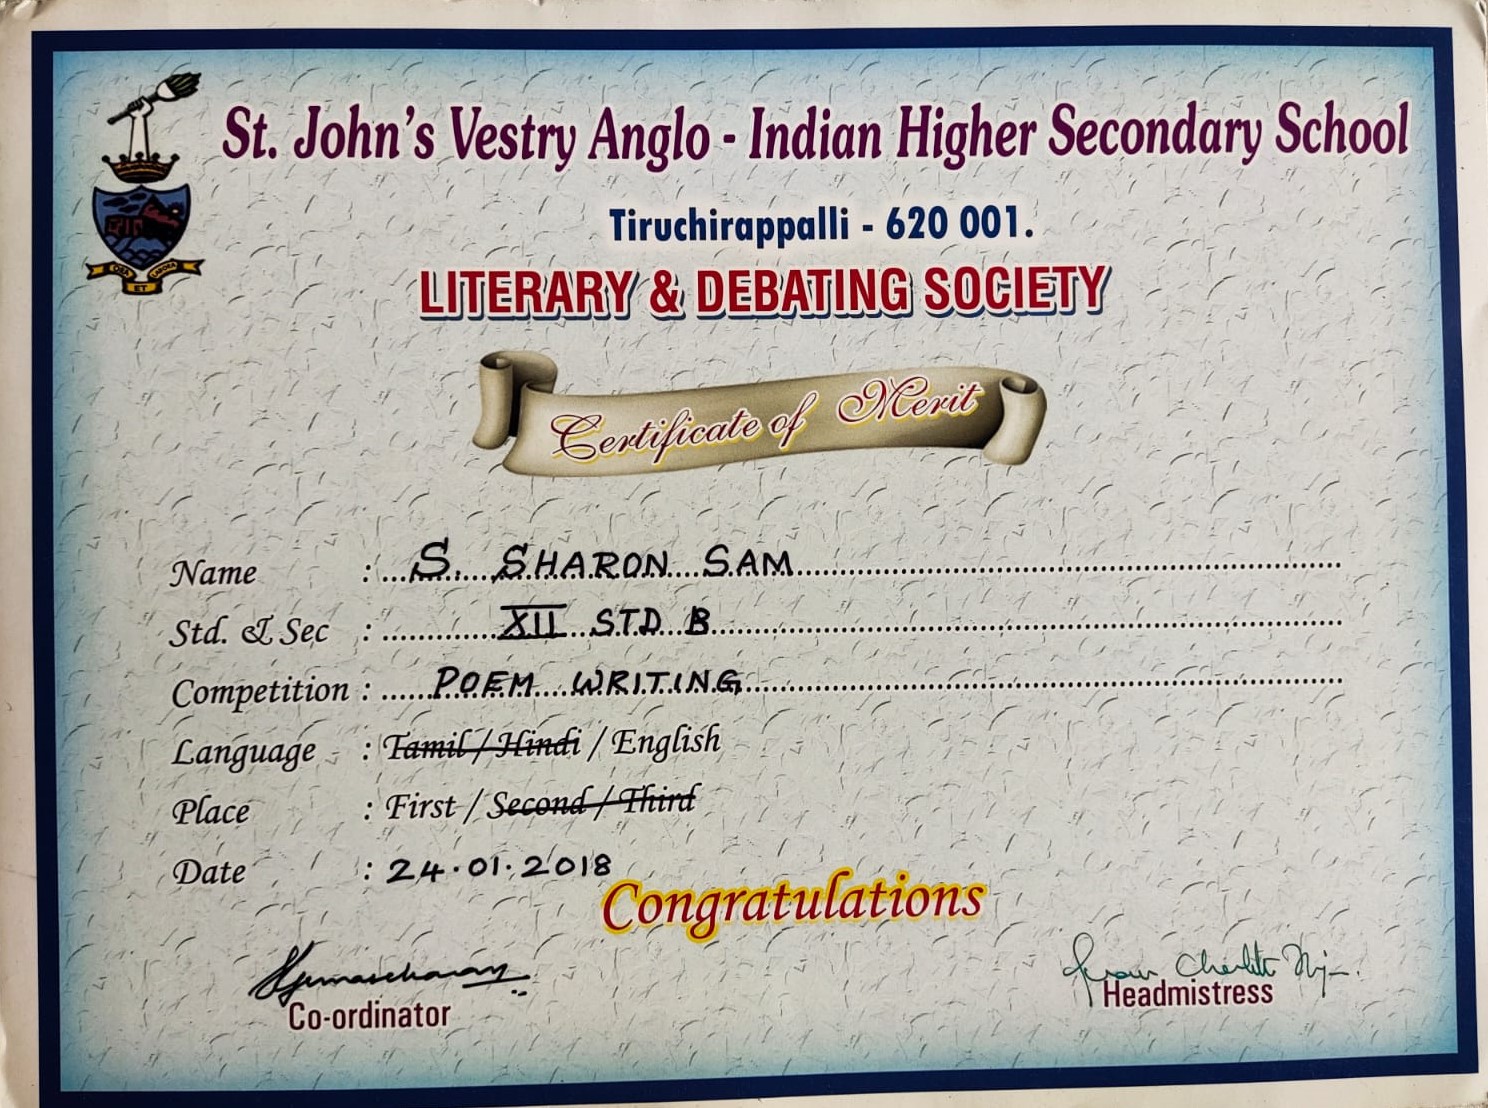 St. John's Vestry Anglo - Indian Higher Secondary School
Tiruchirappalli - 620 001.
LITERARY & DEBATING SOCIETY
ORA ET LABORA
Certificate of Merit
Name : S. SHARON SAM
Std. & Sec : XII STD B
Competition : POEM WRITING
Language : Tamil / Hindi / English
Place : First / Second / Third
Date : 24.01.2018
Congratulations
Co-ordinator
Headmistress